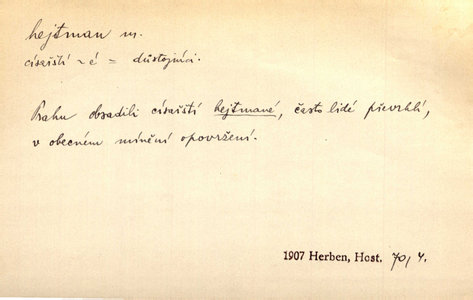 hejtman m.
císařští ~é = důstojníci.
Prahu obsadili císařští hejtmané, často lidé převrhlí,
v obecném mínění opovržení.
1907 Herben, Host. 70, 4.